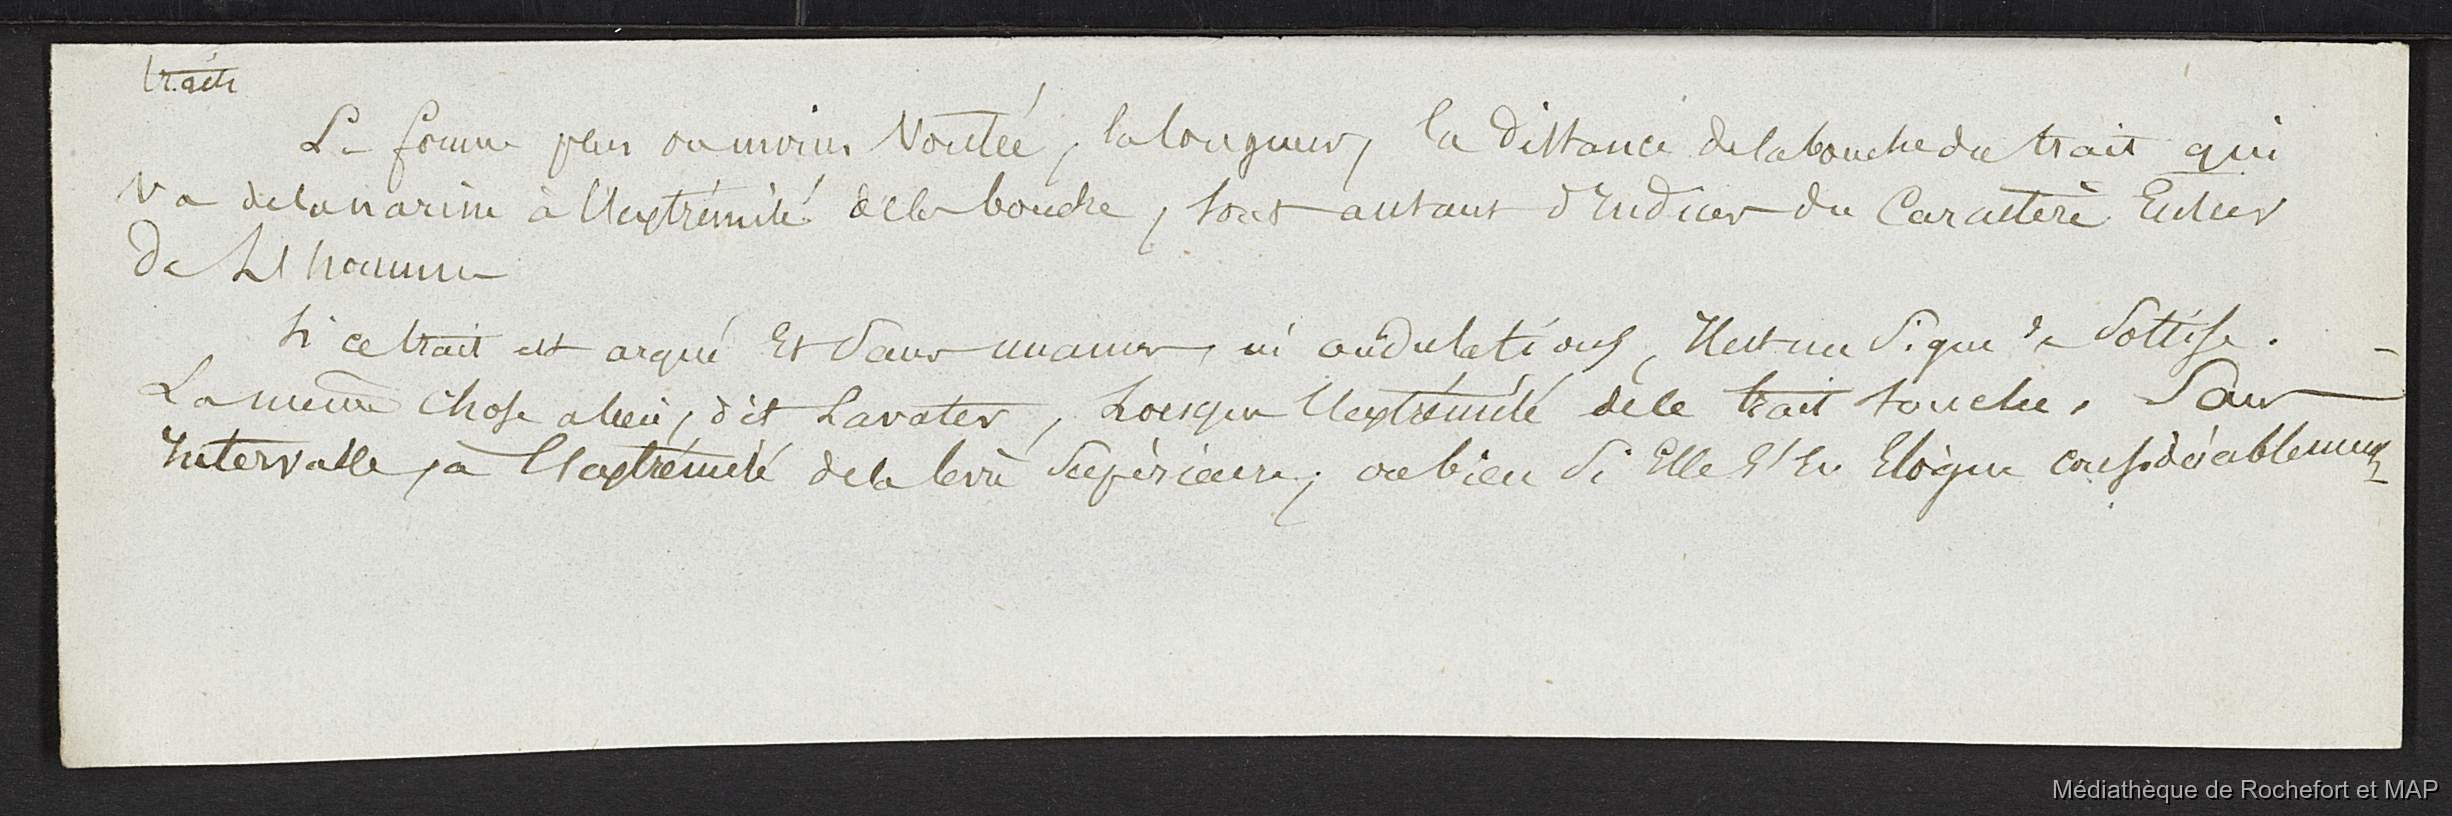 traits
La forme plus ou moins voutée, la longueur, la distance de la bouche du trait qui
va de la narine à l'extrémité de la bouche, sont autant d'Indices du Caractère Entier
De L'homme
Si ce trait est arqué Et sans nuances, ni ondulations, Il est un signe de sottise.
La meme chose a lieu, dit Lavater, Lorsque l'extrémité de ce trait touche, sans
Intervalle, à l'extrémité de la levre supérieure, ou bien si Elle s'En Eloigne considérablement
Médiathèque de Rochefort et MAP